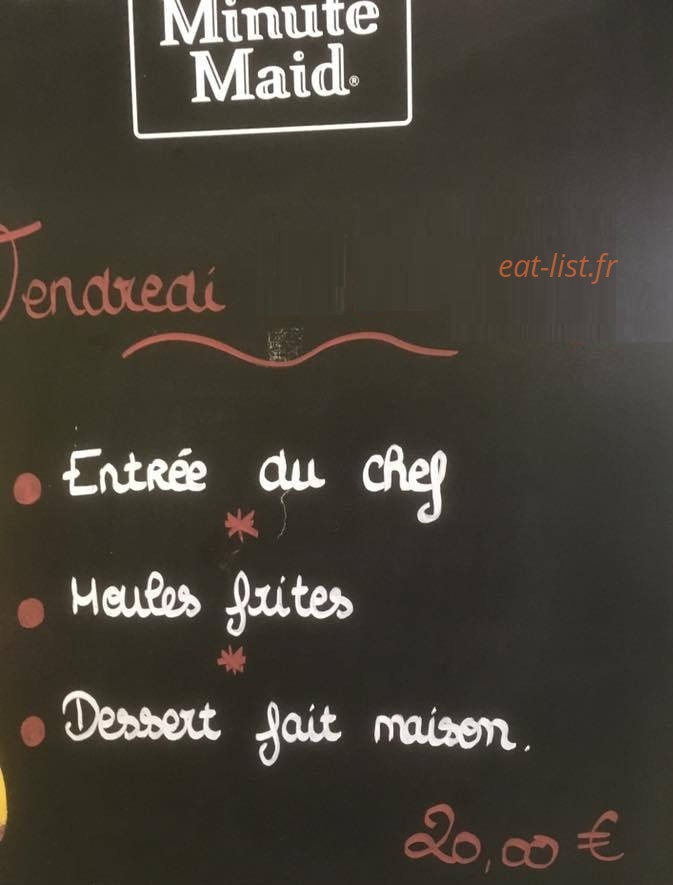 Minute
Maid®
Vendredi
eat-list.fr
Entrée du chef
*
Moules frites
*
Dessert fait maison.
20,00 €